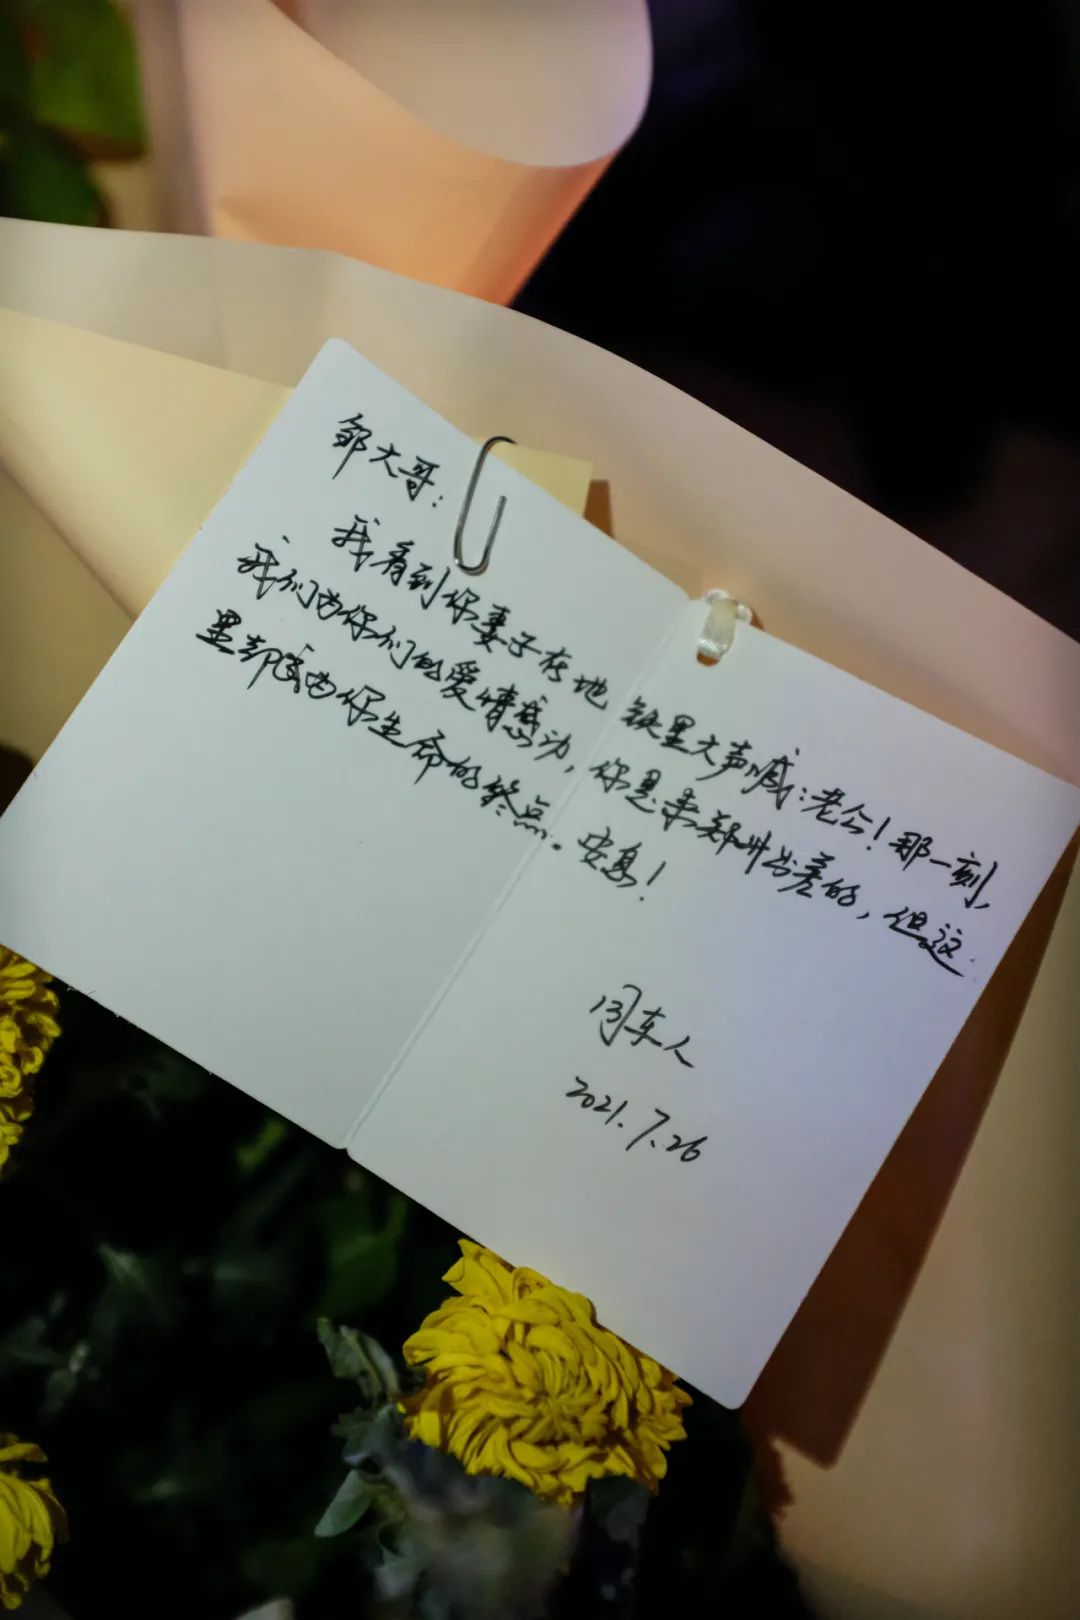 邹大哥：
我看到你妻子在地铁里大声喊：老公！那一刻，
我们为你们的爱情感动，你是来郑州出差的，但这
里却成为你生命的终点。安息！
河东人
2021.7.26